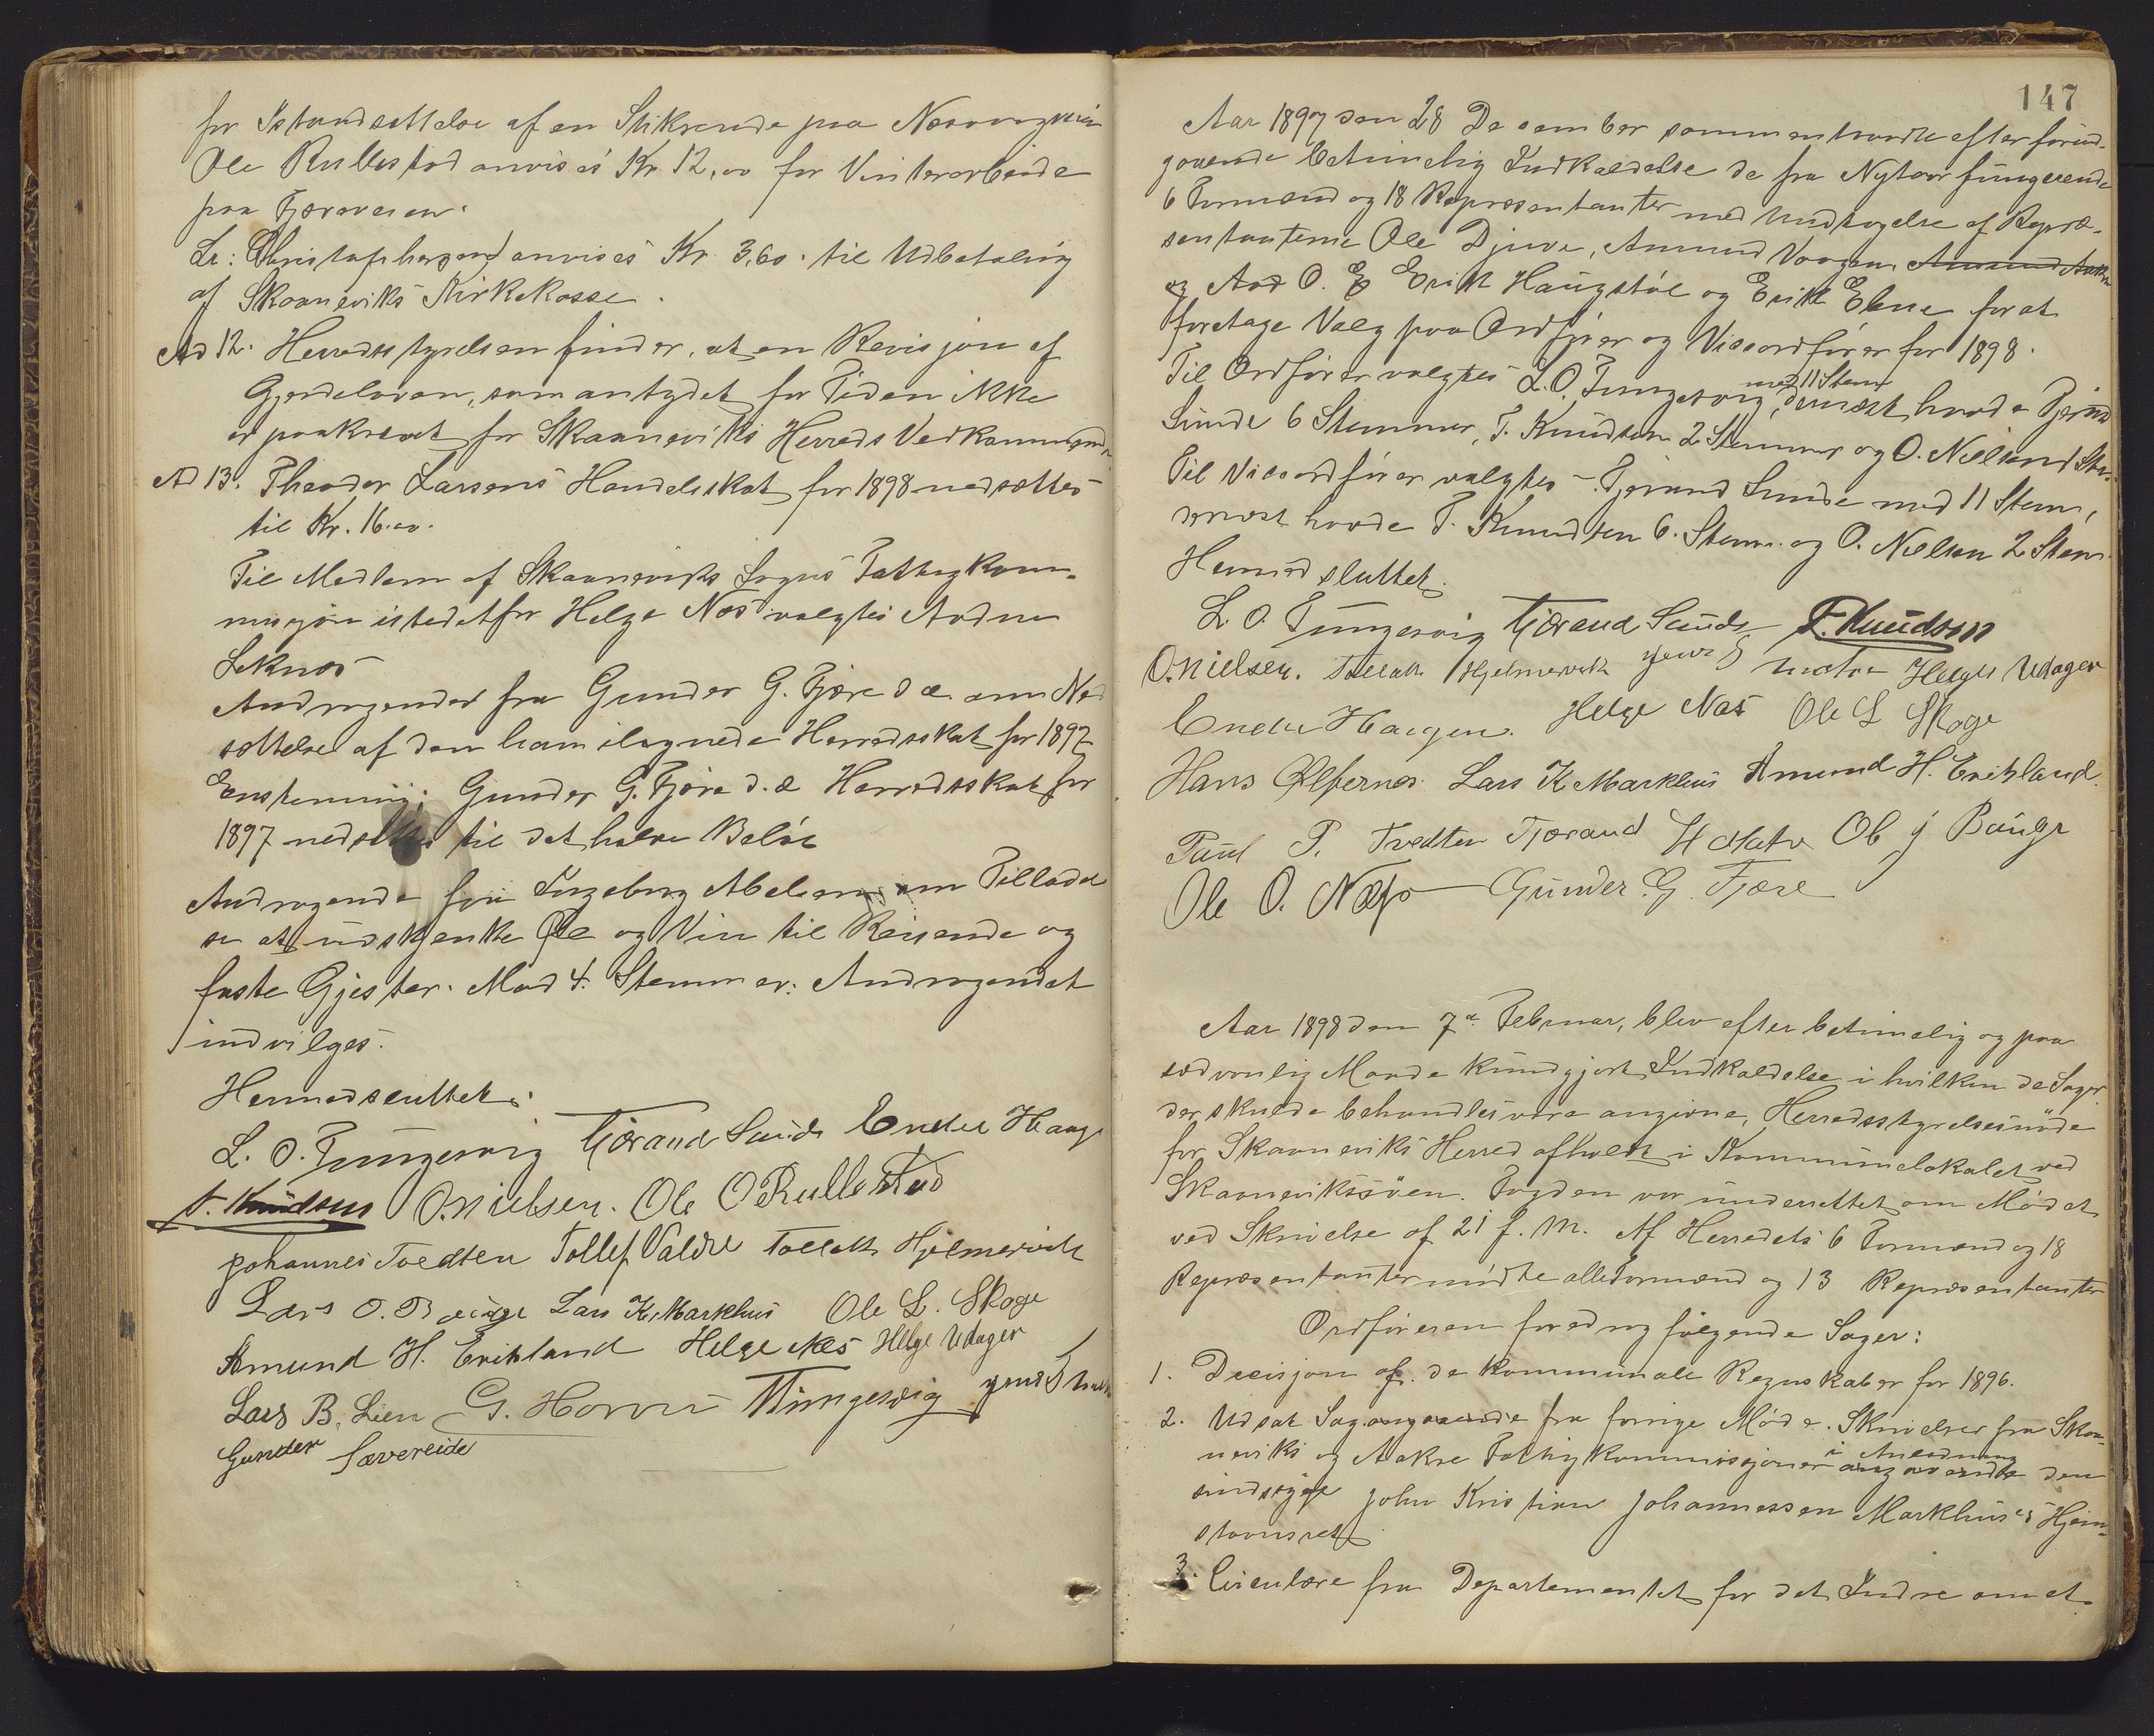 for Istandsættelse af en Stikrende paa Næsvangveien
Ole Rullestad anvises Kr. 12,00 for Vinterarbeide
paa Fjæraveien.
Lr: Christophersen anvises Kr. 3,60. til Udbetaling
af Skaaneviks Kirkekasse.
Ad 12. Herredsstyrelsen finder, at en Revisjon af
Gjerdeloven, som antydet for Tiden ikke
er paakrævet for Skaaneviks Herreds Vedkommende
Ad 13. Theodor Larsens Handelsskat for 1898 nedsættes
til Kr. 16.00.
Til Medlem af Skaaneviks Sogns Fattigkom-
misjon istedetfor Helge Næs valgtes Andrew
Leknæs
Andragender fra Gunder G. Fjære d.æ. om Ned
sættelse af den ham ilagnede Herredsskat for 1897
Enstemmig: Gunder G. Fjære d.æ Herredsskat for
1897 nedsættes til det halve Beløb
Andragende fra Ingeborg Abelsen om Tilladel
se at udskjenke Øl og Vin til Reisende og
faste Gjester. Mod 4. Stemmer: Andragendet
indvilges.
Hermed sluttet.
L. O. Tungesvig Tjærand Sunde Endre Haagen
T. Knudson O. Nielsen. Ole O Rullestad
Johannes Tvedten Tollef Valdre Tollak Hjelmervik
Lars O. Bauge Lars K. Markhus Ole L. Skoge
Amund H. Erikland Helge Næs Helge Udager
Lars B. Lien G. Horvei Tungesvig Jens
Gunder Sævereide
147
Aar 1897 den 28 Desember sammentraadte efter forud-
gaaende betimelig Indkaldelse de fra Nytaar fungerende
6 Formænd og 18 Repræsentanter med Undtagelse af Repræ-
sentanterne Ole Djuve, Amund Vaagen, Amund
og Aad O. E Erik Haugstøl og Erik Ebne for at
foretage Valg paa Ordfører og Viseordfører for 1898.
Til Ordfører valgtes L. O. Tungesvig med 11 Stem, dernæst havde Tjerand
Sunde 6 Stemmer, T. Knudson 2 Stemmer og O. Nielsen 1 Stem.
Til Viseordfører valgtes Tjerand Sunde med 11 Stem,
dernæst havde T. Knudson 6. Stem. og O. Nielsen 2 Stem.
Hermed sluttet.
L. O. Tungesvig Tjærand Sunde T. Knudson
O. Nielsen. Tollak Hjelmervik Jens S Helge Udager
Endre Haagen. Helge Næs Ole L Skoge
Hans Ølfernes Lars K Markhus Amund H. Erikland.
Paul P. Tvedten Tjærand H Ole J Bauge
Ole O. Næss Gunder G. Fjære
Aar 1898 den 7de Februar, blev efter betimelig og paa
sædvanlig Maade kundgjort Indkaldelse i hvilken de Sager
der skulde behandles vare angivne, Herredsstyrelsesmøde
for Skaaneviks Herred afholdt i Kommunelokalet ved
Skaanevikssøen. Fogden var underrettet om Mødet
ved Skrivelse af 21 f. M. Af Herredets 6 Formænd og 18
Repræsentanter mødte alle Formænd og 13 Repræsentanter
Ordføreren foredrog følgende Sager:
1. Decisjon af de kommunale Regnskaber for 1896.
2. Udsat Sag angaaende fra forrige Møde. Skrivelser fra Skaa-
neviks og Aakre Fattigkommissjoner i Anledning angaaende den
sindsyge John Kristian Johannessen Markhus's Hjem-
stavnsret
3. Circulære fra Departementet for det Indre om at